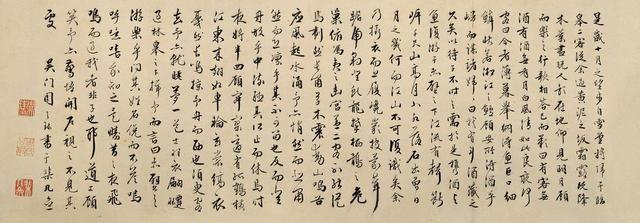 是歲十月之望步自雪堂將歸于臨
皋二客從余過黃泥之坂霜露既降
木葉盡脫人影在地仰見明月顧
而樂之行歌相答已而嘆曰有客無
酒有酒無肴月白風清如此良夜何
客曰今者薄暮舉網得魚巨口細
鱗狀若松江之鱸顧安所得酒乎
歸而謀諸婦婦曰我有斗酒藏之
久矣以待子不時之需於是攜酒與
魚復游于赤壁之下江流有聲斷
岸千尺山高月小水落石出曾日
月之幾何而江山不可復識矣余
乃攝衣而上履巉巖披蒙茸
踞虎豹登虬龍攀栖鶻之危
巢俯馮夷之幽宮蓋二客不能從
焉劃然長嘯草木震動山鳴谷
應風起水涌予亦悄然而悲肅
然而恐凜乎其不可留也反而登
舟放乎中流聽其所止而休焉時
夜將半四顧寂寥適有孤鶴橫
江東來翅如車輪玄裳縞衣
戛然長鳴掠予舟而西也須臾客
去予亦就睡夢一道士羽衣翩躚
過臨皋之下揖予而言曰赤壁之
遊樂乎問其姓名俛而不答嗚
呼噫嘻我知之矣疇昔之夜飛
鳴而過我者非子也耶道士顧
笑予亦驚悟開戶視之不見其
處 吳門周 書于